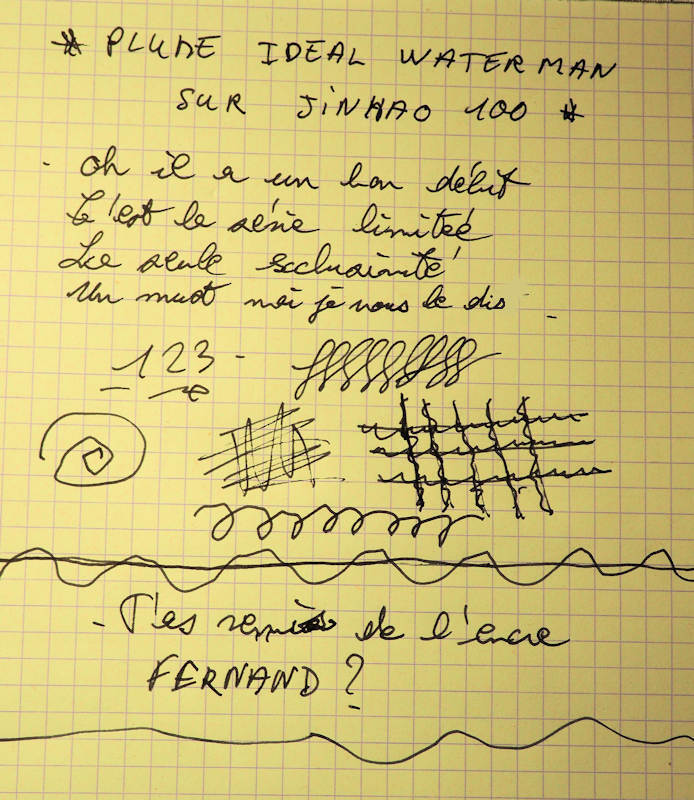 * PLUME IDEAL WATERMAN
SUR JINHAO 100 *
- oh il a un bon débit
C'est le série limiteé
La seule exclusivité
Un must moi je vous le dis -
- 123 -
- T'es remis de l'encre
FERNAND ?